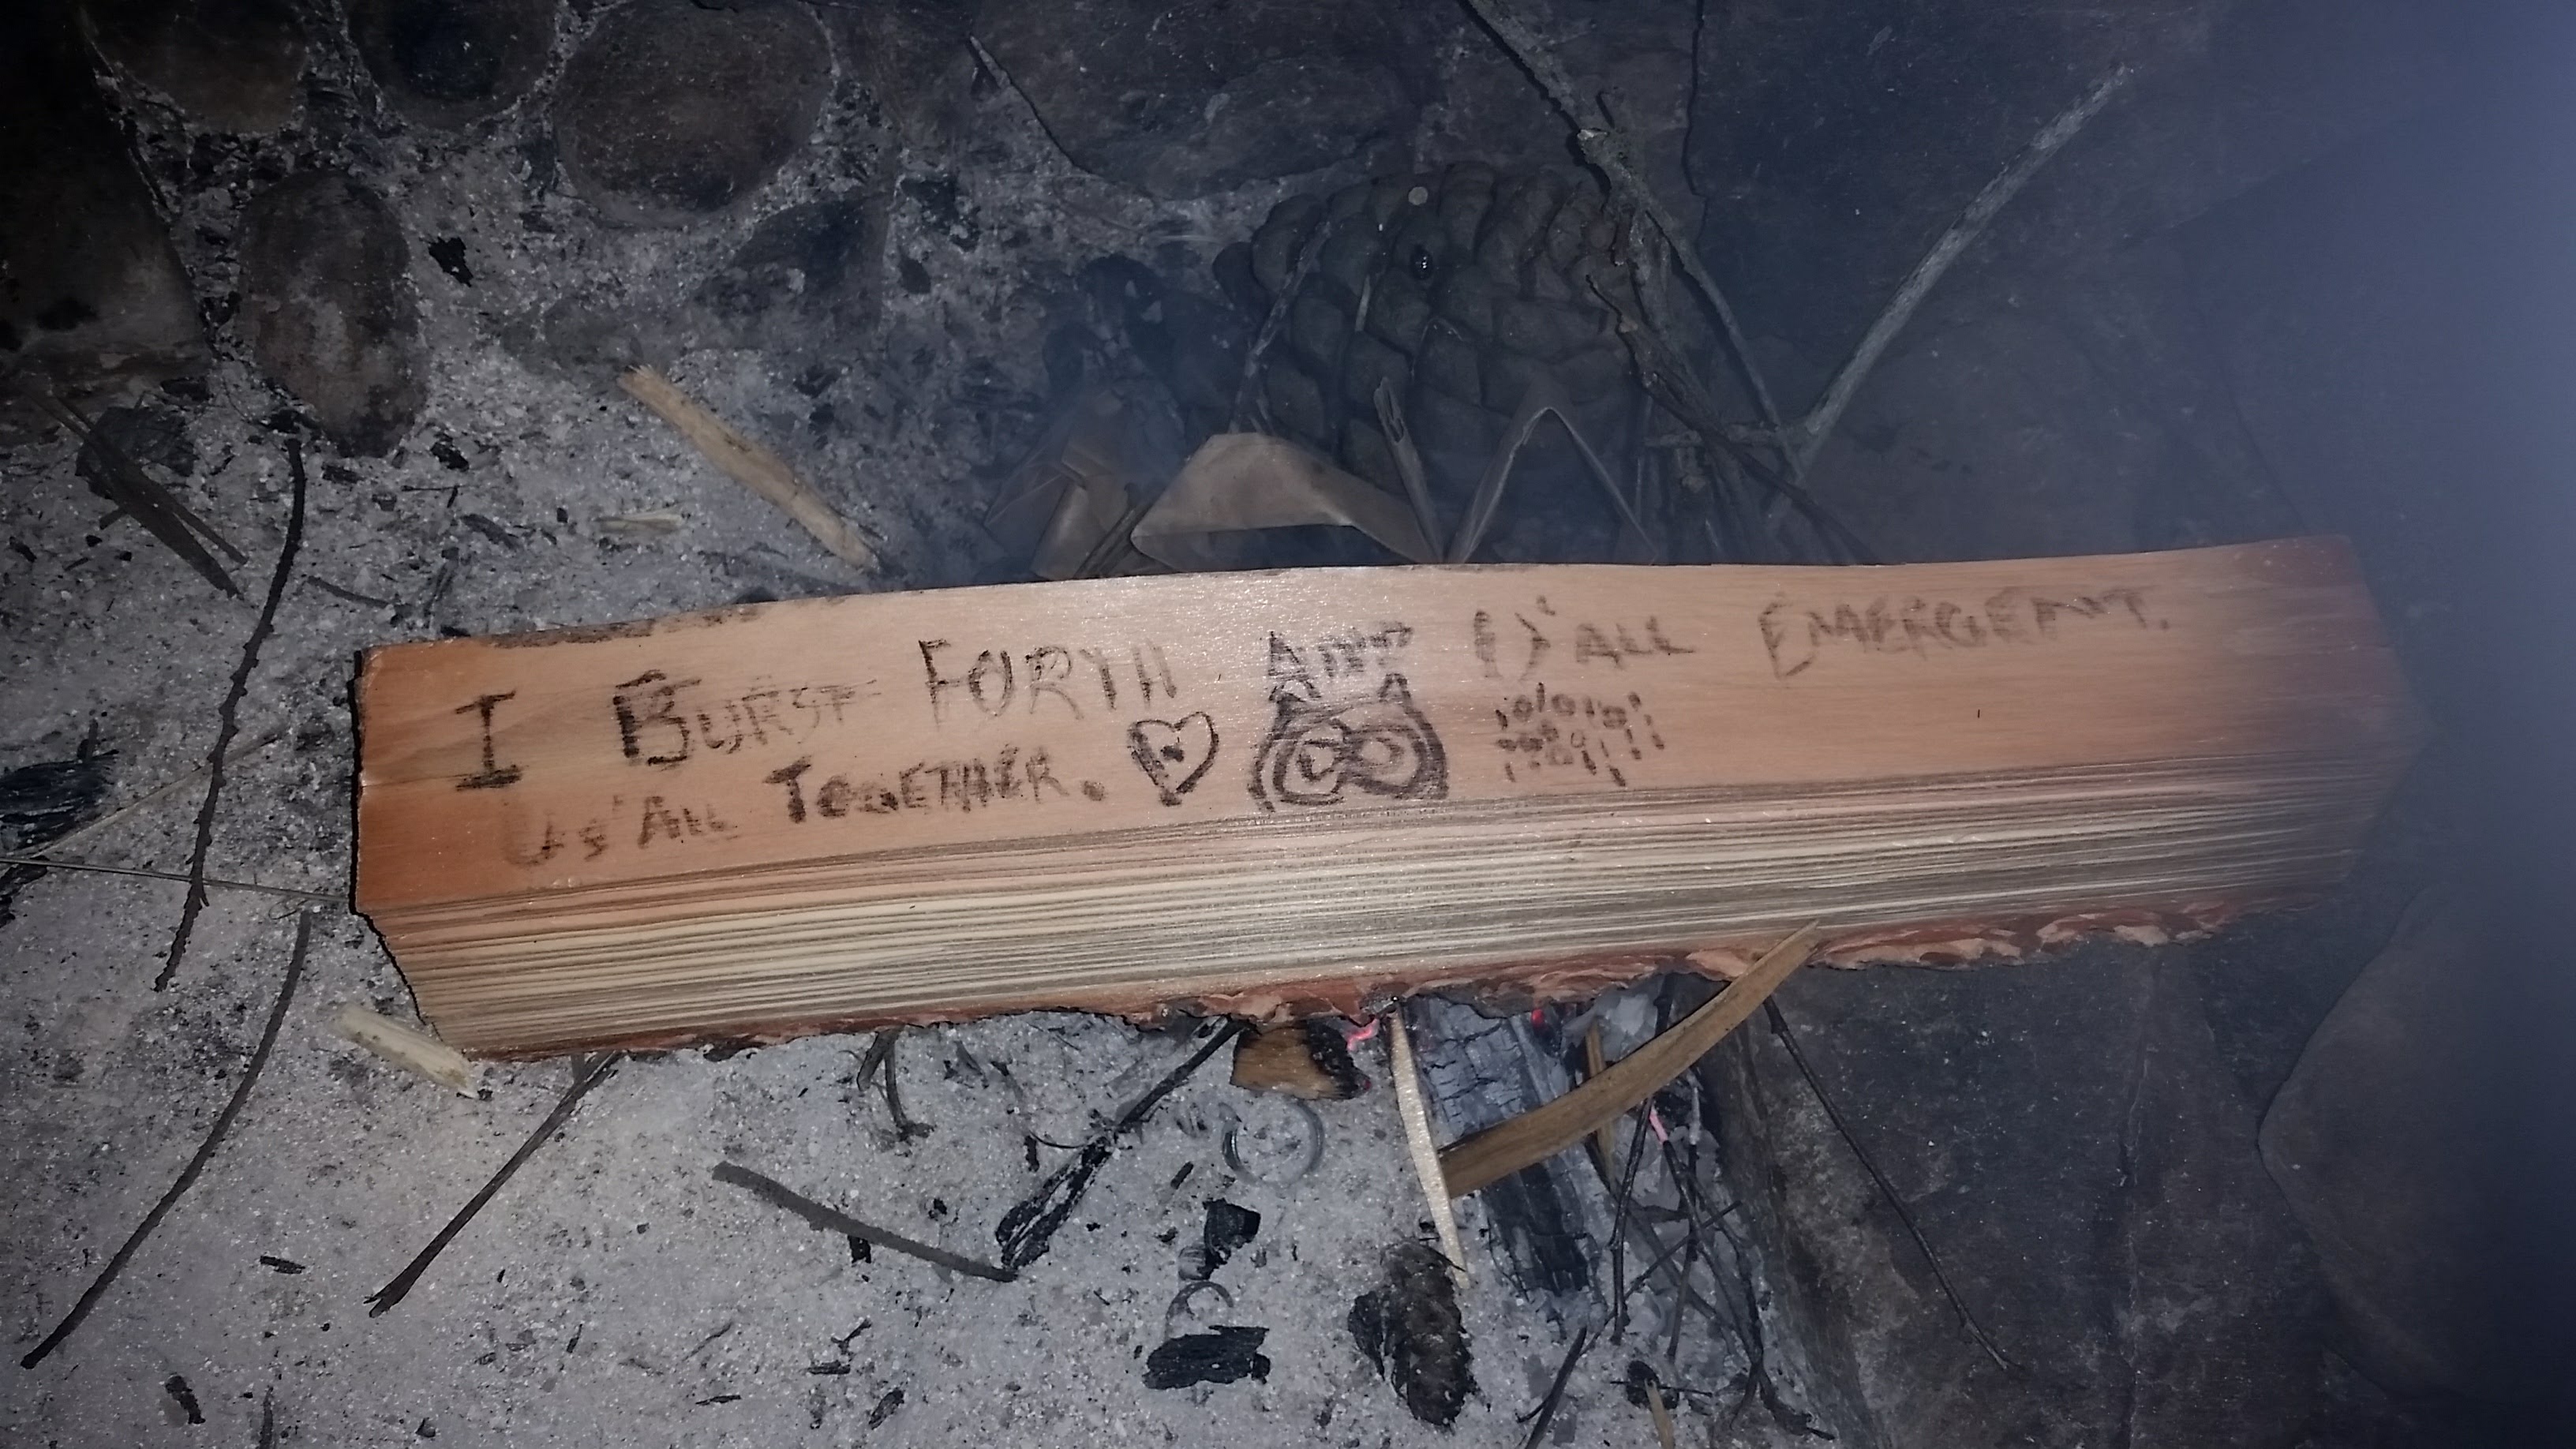 I BURST FORTH AND Y'ALL EMERGENT.
US'ALL TOGETHER.